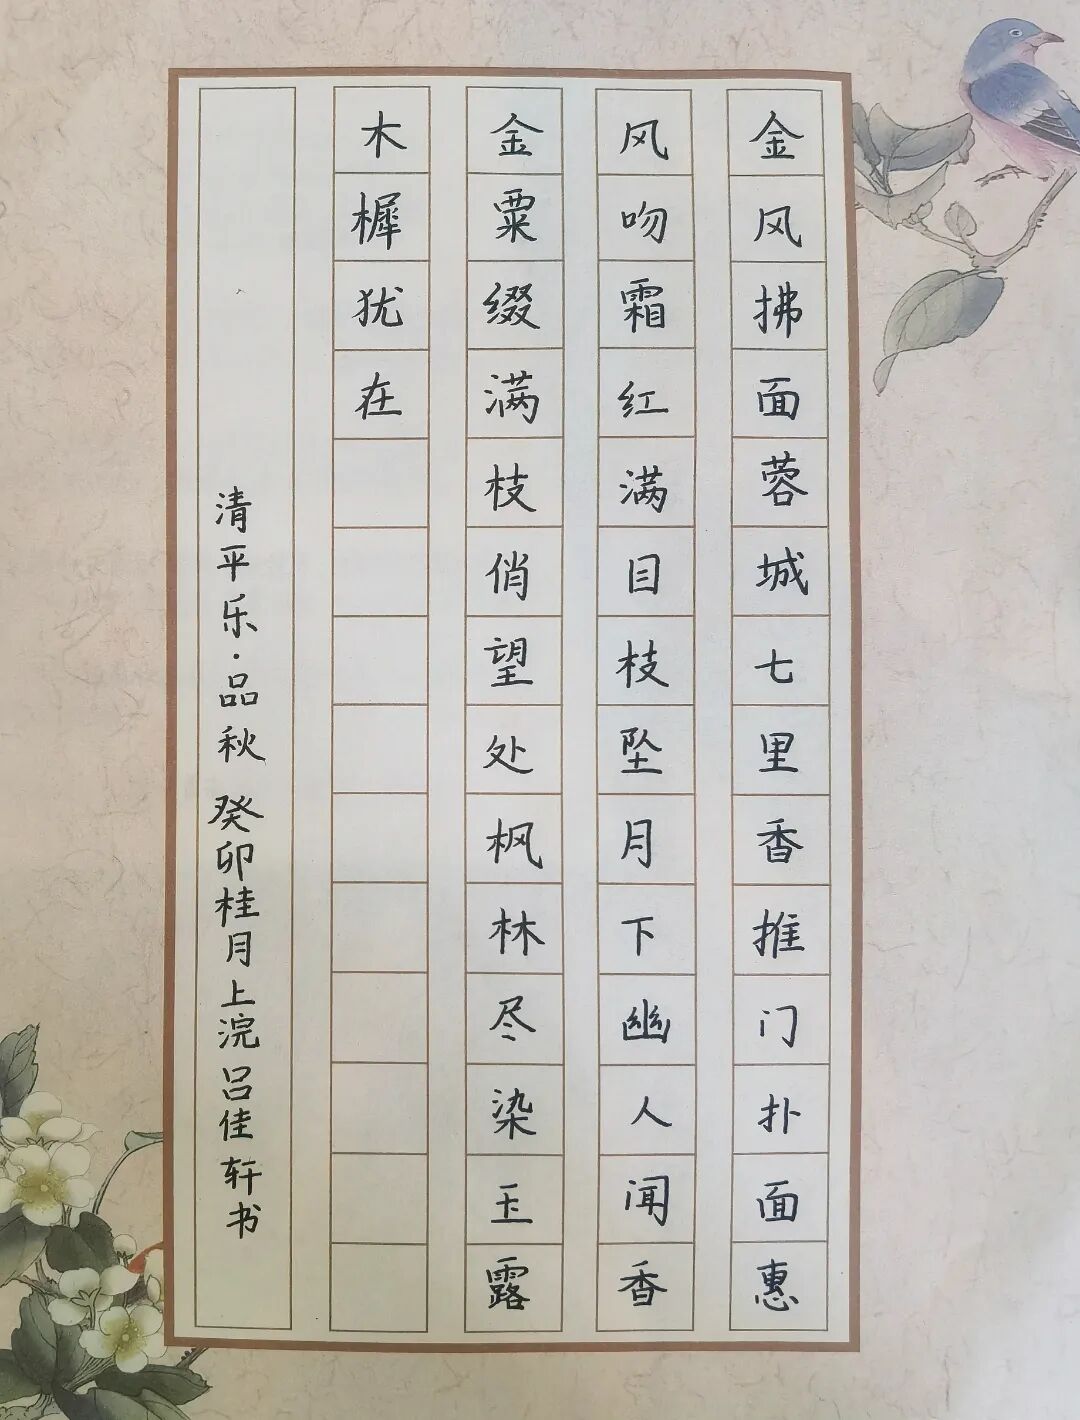 金风拂面蓉城七里香推门扑面惠
风吻霜红满目枝坠月下幽人闻香
金粟缀满枝俏望处枫林尽染玉露
木樨犹在
清平乐·品秋 癸卯桂月上浣吕佳轩书